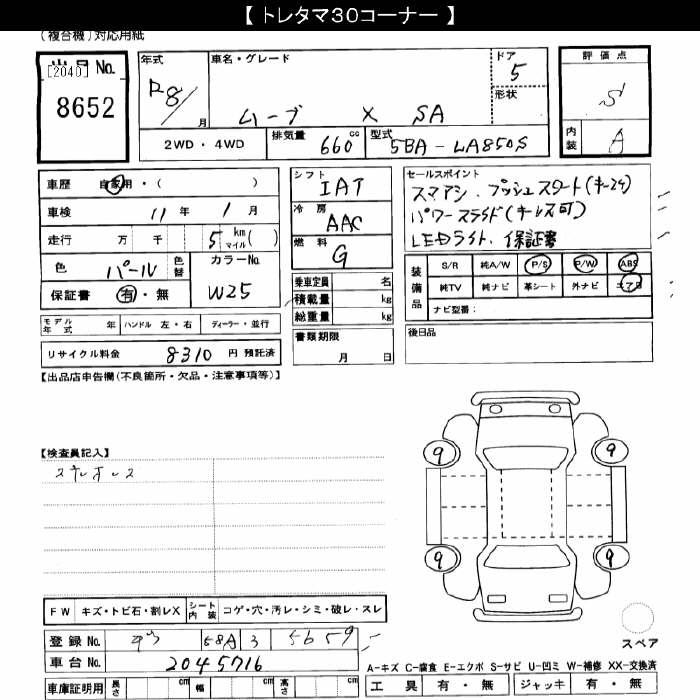 【 トレタマ30コーナー 】
(複合機)対応用紙
出品 No.
[2040]
8652
年式
R8/
月
車名・グレード
ムーブ X SA
ドア
5
形状
評価点
S
内装
A
2WD・4WD
排気量
660 cc
型式
5BA-LA850S
車歴 自家用・( )
車検 11年 1月
走行 万 千 5 km マイル( )
色 パール
色替
カラーNo.
W25
保証書 有・無
シフト
IAT
冷房
AAC
燃料
G
乗車定員 名
積載量 kg
総重量 kg
セールスポイント
スマアシ、プッシュスタート(キー2ケ)
パワースライド(キーレス可)
LEDライト、保証書
装備品
S/R 純A/W P/S P/W ABS
純TV 純ナビ 革シート 外ナビ エアB
ナビ型番:
モデル年式 年 ハンドル 左・右 ディーラー・並行
書類期限
月 日
後日品
リサイクル料金 8310 円 預託済
【出品店申告欄(不良箇所・欠品・注意事項等)】
【検査員記入】
スペアレス
9 9
9 9
スペア
FW キズ・トビ石・割レX シート内装 コゲ・穴・汚レ・シミ・破レ・スレ
登録 No. 58A 3 5659
車台 No. 2045716
車庫証明用 長さ cm 幅 cm 高さ cm
A-キズ C-腐食 E-エクボ S-サビ U-凹ミ W-補修 XX-交換済
工具 有・無 ジャッキ 有・無